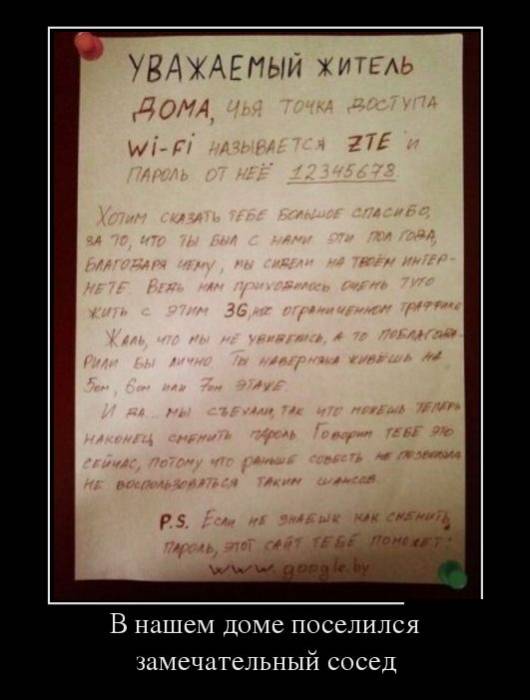 УВАЖАЕМЫЙ ЖИТЕЛЬ
ДОМА, ЧЬЯ ТОЧКА ДОСТУПА
Wi-Fi НАЗЫВАЕТСЯ ZTE И
ПАРОЛЬ ОТ НЕЁ 12345678.
ХОТИМ СКАЗАТЬ ТЕБЕ БОЛЬШОЕ СПАСИБО,
ЗА ТО, ЧТО ТЫ БЫЛ С НАМИ ЭТИ ПОЛ ГОДА,
БЛАГОДАРЯ ЧЕМУ, МЫ СИДЕЛИ НА ТВОЁМ ИНТЕР-
НЕТЕ. ВЕДЬ НАМ ПРИХОДИЛОСЬ ОЧЕНЬ ТУГО
ЖИТЬ С ЭТИМ 3G, ОГРАНИЧЕННОМ ТРАФФИКЕ
ЖАЛЬ, ЧТО МЫ НЕ УВИДЕЛИСЬ, А ТО ПОБЛАГОДА-
РИЛИ БЫ ЛИЧНО. ТЫ НАВЕРНЯКА ЖИВЁШЬ НА
5ом, 6ом ИЛИ 7ом ЭТАЖЕ.
И ДА... МЫ СЪЕХАЛИ, ТАК ЧТО МОЖЕШЬ ТЕПЕРЬ
НАКОНЕЦ СМЕНИТЬ ПАРОЛЬ. ГОВОРИМ ТЕБЕ ЭТО
СЕЙЧАС, ПОТОМУ ЧТО РАНЬШЕ СОВЕСТЬ НЕ ПОЗВОЛИЛА
НЕ ВОСПОЛЬЗОВАТЬСЯ ТАКИМ ШАНСОМ.
P.S. ЕСЛИ НЕ ЗНАЕШЬ КАК СМЕНИТЬ
ПАРОЛЬ, ЭТОТ САЙТ ТЕБЕ ПОМОЖЕТ:
www.google.by
В нашем доме поселился
замечательный сосед